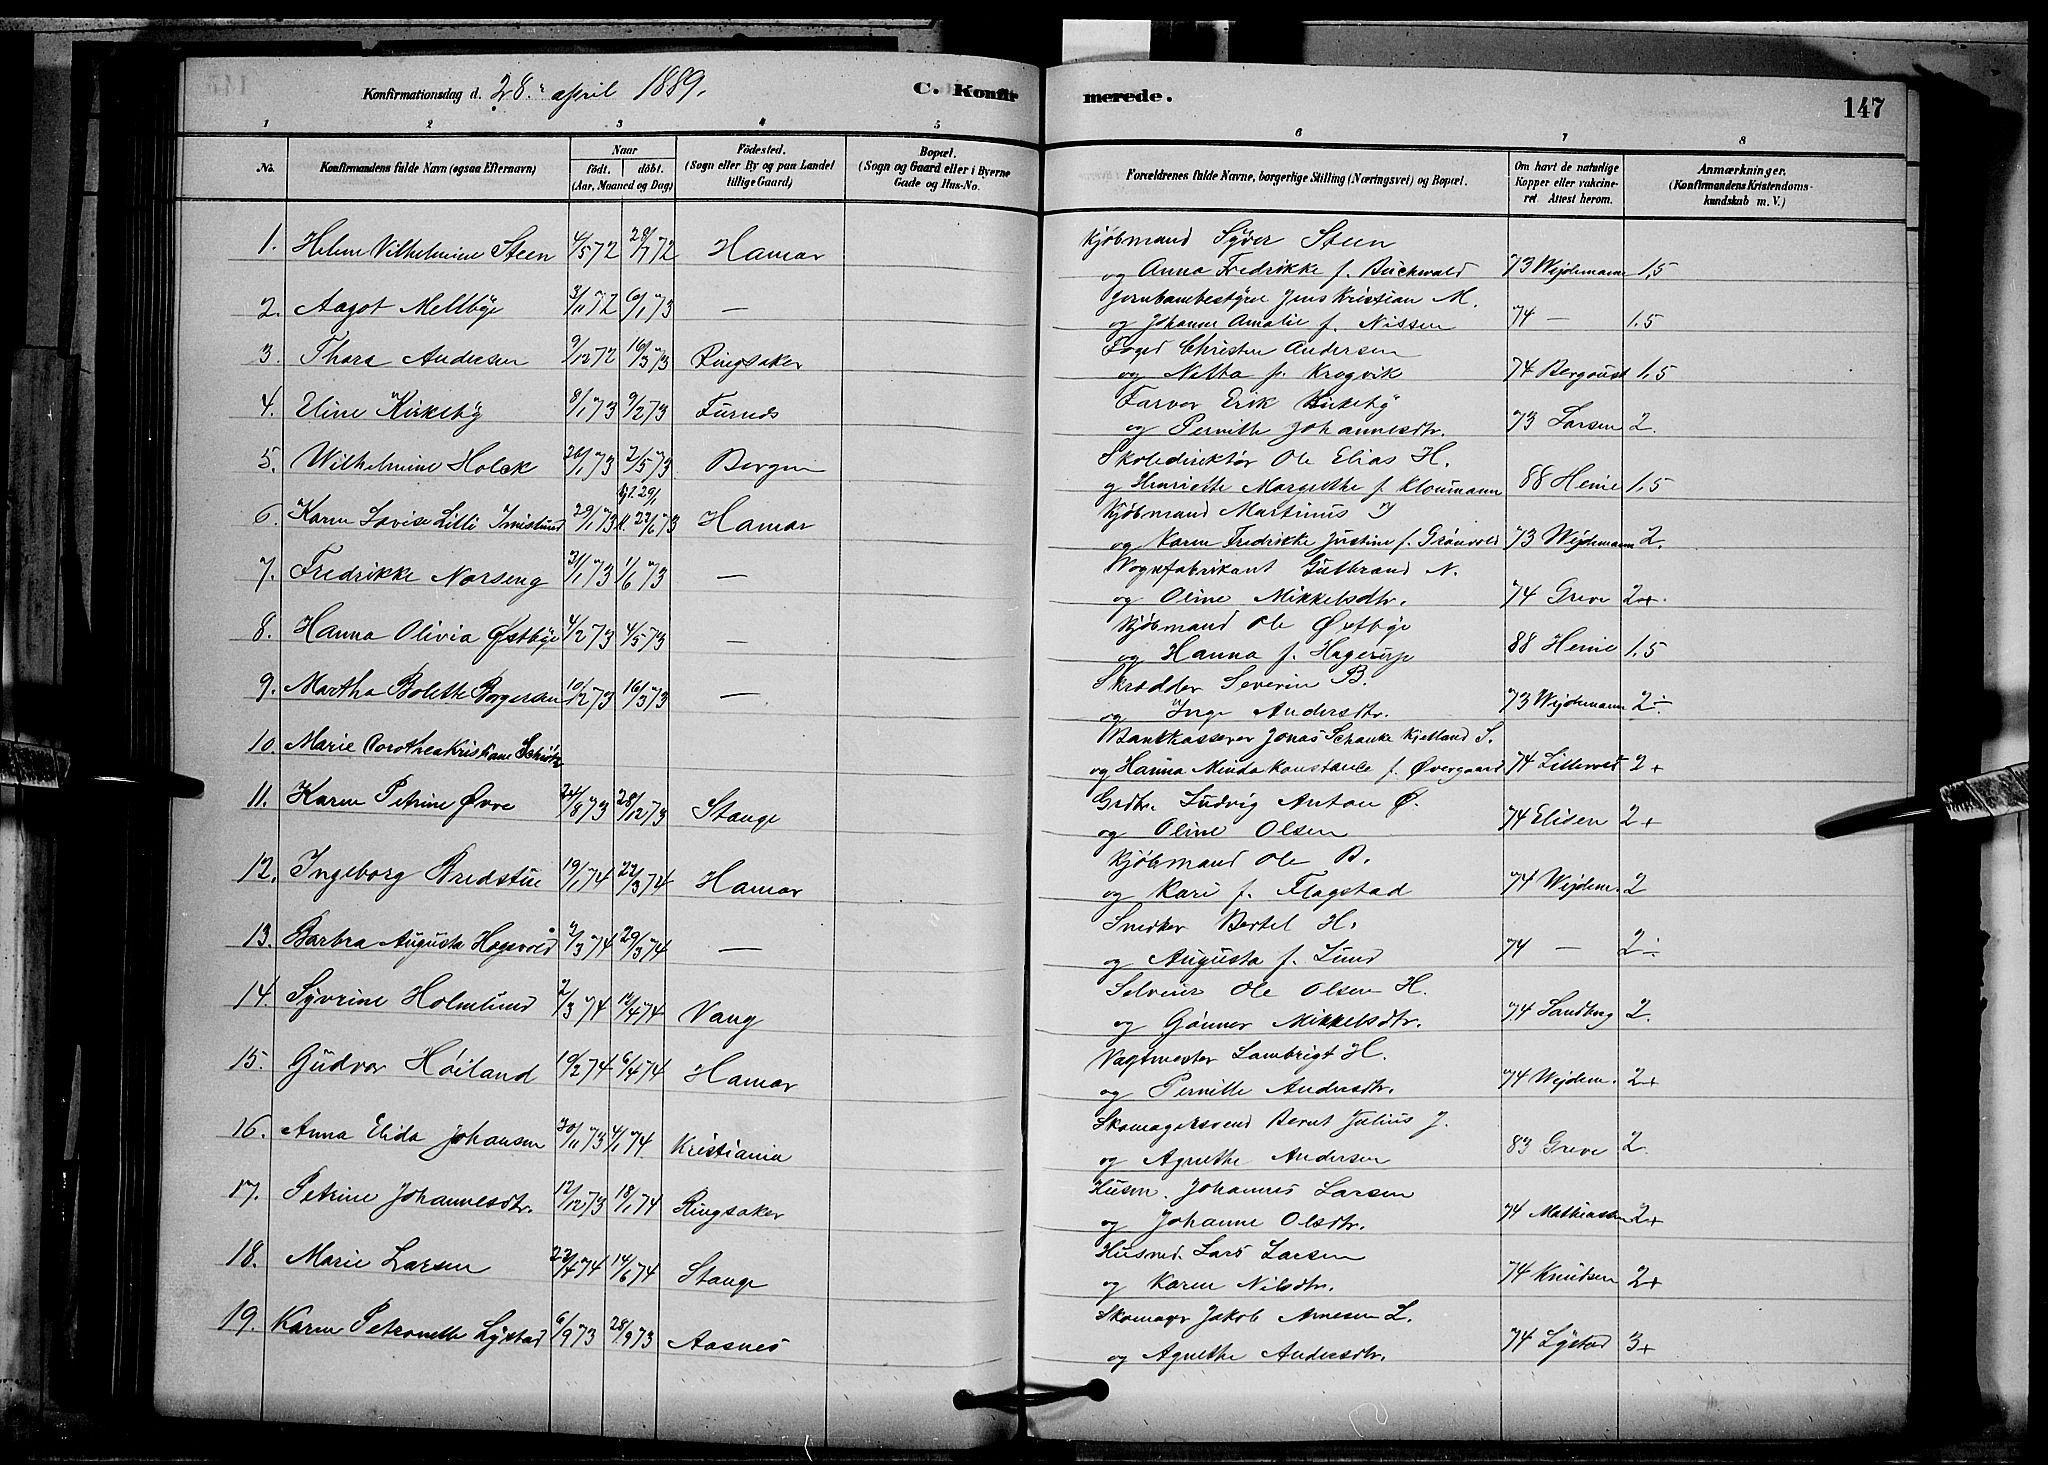 Konfirmationsdag d. 28. april 1889.
C. Konfirmerede.
147
1 2 3 4 5 6 7 8
No.
Konfirmandens fulde Navn (ogsaa Efternavn)
Naar
født. døbt.
(Aar, Maaned og Dag)
Fødested.
(Sogn eller By og paa Landet
tillige Gaard)
Bopæl.
(Sogn og Gaard eller i Byerne
Gade og Hus-No.
Forældrenes fulde Navne, borgerlige Stilling (Næringsvei) og Bopæl.
Om havt de naturlige
Kopper eller vakcine-
ret Attest herom.
Anmærkninger.
(Konfirmandens Kristendoms-
kundskab m. V.)
1. Helene Vilhelmine Steen 4/5 72 28/7 72 Hamar Kjøbmand Syver Steen
og Anna Fredrikke f. Buchwald 73 Wejdemann 1,5
2. Aagot Mellbye 3/11 72 6/1 73 — Jernbanebestyrer Jens Kristian M.
og Johanne Amalie f. Nissen 74 — 1.5
3. Thora Andersen 9/12 72 16/3 73 Ringsaker Foged Christen Andersen
og Netta f. Krogvik 74 Bergaust 1,5
4. Eline Kirkeby 8/1 73 9/2 73 Furnes Farver Erik Kirkeby
og Pernille Johannesdtr. 73 Larsen 2.
5. Wilhelmine Holck 20/1 73 2/5 73 Bergen Skoledirektør Ole Elias H.
og Henriette Margrethe f. Kloumann 88 Heine 1,5
6. Karen Lovise Lilli Imislund 29/1 73 hj. 29/1 k. 27/6 73 Hamar Kjøbmand Martinus I
og Karen Fredrikke Justine f. Grønvold 73 Wejdemann 2.
7. Fredrikke Norseng 31/1 73 1/6 73 — Vognfabrikant Gulbrand N.
og Oline Mikkelsdtr. 74 Greve 2+
8. Hanna Olivia Østbye 4/2 73 4/5 73 — Kjøbmand Ole Østbye
og Hanna f. Hagerup 88 Heine 1,5
9. Martha Bolette Borgersen 10/2 73 16/3 73 — Skrædder Severin B.
og Inge Andersdtr. 73 Wejdemann 2÷
10. Marie Dorothea Kristiane Schiøtz Bankkasserer Jonas Schanke Kjelland S.
og Hanna Minda Konstance f. Øvergaard 74 Lillevold 2+
11. Karen Petrine Øvre 24/8 73 28/12 73 Stange Grdbr. Ludvig Anton Ø.
og Oline Olsen 74 Elisen 2+
12. Ingeborg Bredstue 19/1 74 22/3 74 Hamar Kjøbmand Ole B.
og Kari f. Flagstad 74 Wejdem. 2
13. Barbra Augusta Hogsvold 2/3 74 29/3 74 — Snedker Bertel H.
og Augusta f. Lund 74 — 2÷
14. Syvrine Holmlund 2/3 74 12/4 74 Vang Selveier Ole Olsen H.
og Gønner Mikkelsdtr. 74 Sandberg 2.
15. Gudvor Høiland 19/2 74 6/4 74 Hamar Vagtmester Lambrigt H.
og Pernille Andersdtr. 74 Wejdem. 2+
16. Anna Elida Johansen 30/11 73 4/1 74 Kristiania Skomagersvend Bernt Julius J.
og Agnethe Andersen 83 Greve 2
17. Petrine Johannesdtr. 12/12 73 18/1 74 Ringsaker Husm. Johannes Larsen
og Johanne Olsdtr. 74 Mathiassen 2+
18. Marie Larsen 22/4 74 14/6 74 Stange Husmd. Lars Larsen
og Karen Nilsdtr. 74 Knudsen 2+
19. Karen Petronelle Lystad 6/9 73 28/9 73 Aasnes Skomager Jakob Arnesen L.
og Agnethe Andersdtr. 74 Lystad 3+